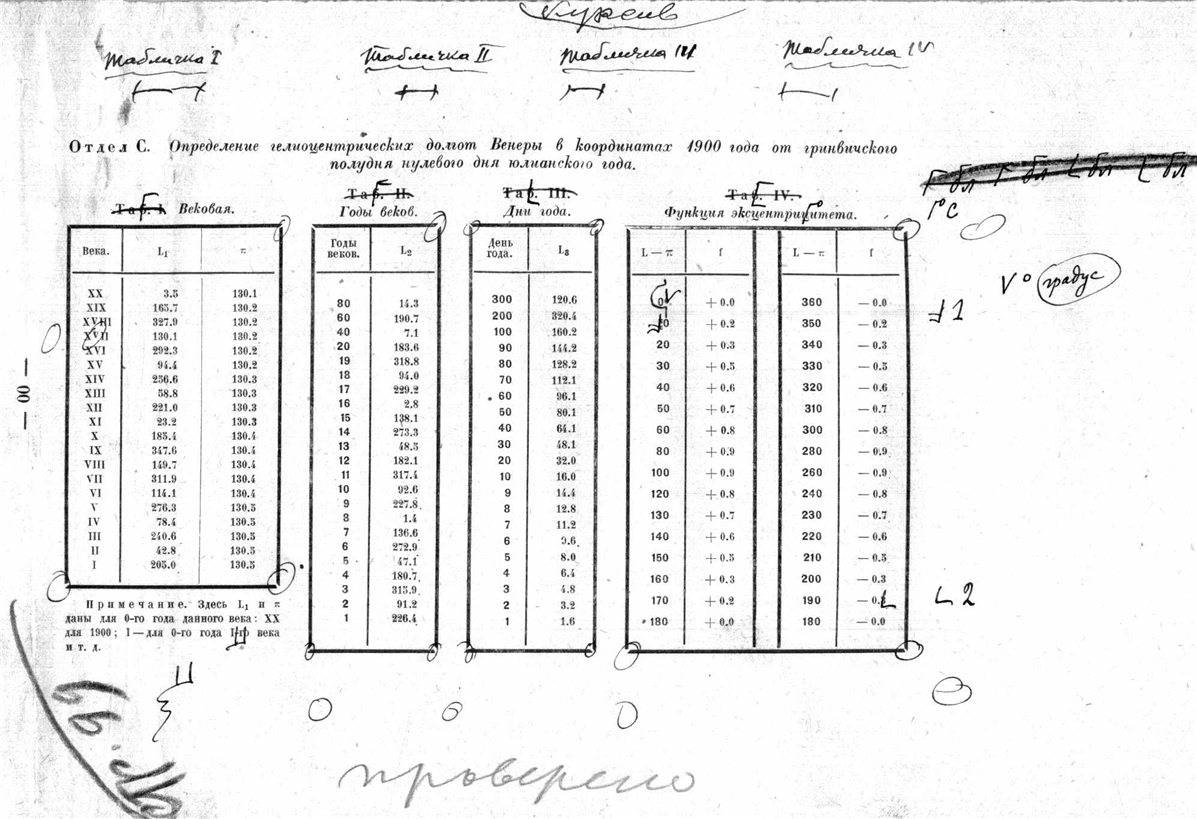 Курсив
Табличка I Табличка II Табличка III Табличка IV
Отдел С. Определение гелиоцентрических долгот Венеры в координатах 1900 года от гринвичского
полудня нулевого дня юлианского года.
Таб. I Вековая.
Века. L₁ π
XX 3.5 130.1
XIX 165.7 130.2
XVIII 327.9 130.2
XVII 130.1 130.2
XVI 292.3 130.2
XV 94.4 130.2
XIV 256.6 130.3
XIII 58.8 130.3
XII 221.0 130.3
XI 23.2 130.3
X 185.4 130.4
IX 347.6 130.4
VIII 149.7 130.4
VII 311.9 130.4
VI 114.1 130.4
V 276.3 130.5
IV 78.4 130.5
III 240.6 130.5
II 42.8 130.5
I 205.0 130.5
Примечание. Здесь L₁ и π
даны для 0-го года данного века: XX
для 1900; I — для 0-го года I-го века
и т. д.
Таб. II.
Годы веков.
Годы
веков. L₂
80 14.3
60 190.7
40 7.1
20 183.6
19 318.8
18 94.0
17 229.2
16 2.8
15 138.1
14 273.3
13 48.5
12 182.1
11 317.4
10 92.6
9 227.8
8 1.4
7 136.6
6 272.9
5 47.1
4 180.7
3 315.9
2 91.2
1 226.4
Таб. III.
Дни года.
День
года. L₃
300 120.6
200 320.4
100 160.2
90 144.2
80 128.2
70 112.1
60 96.1
50 80.1
40 64.1
30 48.1
20 32.0
10 16.0
9 14.4
8 12.8
7 11.2
6 9.6
5 8.0
4 6.4
3 4.8
2 3.2
1 1.6
Таб. IV.
Функция эксцентрицитета.
L — π f L — π f
0 + 0.0 360 — 0.0
10 + 0.2 350 — 0.2
20 + 0.3 340 — 0.3
30 + 0.5 330 — 0.5
40 + 0.6 320 — 0.6
50 + 0.7 310 — 0.7
60 + 0.8 300 — 0.8
80 + 0.9 280 — 0.9
100 + 0.9 260 — 0.9
120 + 0.8 240 — 0.8
130 + 0.7 230 — 0.7
140 + 0.6 220 — 0.6
150 + 0.5 210 — 0.5
160 + 0.3 200 — 0.3
170 + 0.2 190 — 0.2
180 + 0.0 180 — 0.0
градус
— 00 —
проверено